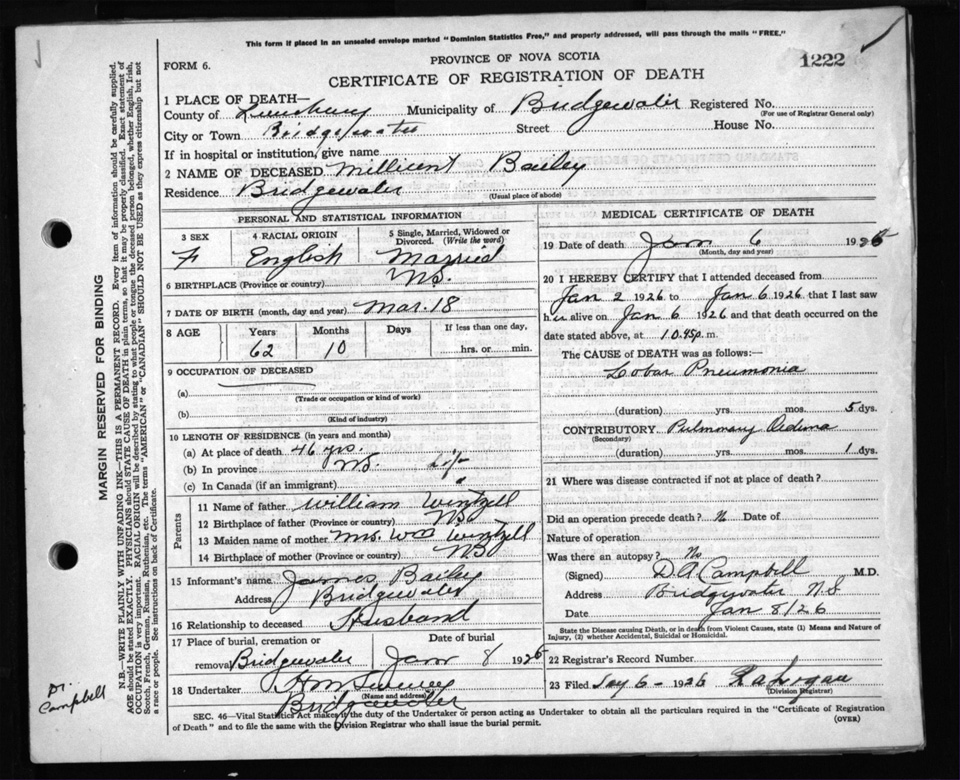 This form if placed in an unsealed envelope marked "Dominion Statistics Free," and properly addressed, will pass through the mails "FREE."
FORM 6.
PROVINCE OF NOVA SCOTIA
1222
CERTIFICATE OF REGISTRATION OF DEATH
1 PLACE OF DEATH—
County of Lunenburg Municipality of Bridgewater Registered No.
(For use of Registrar General only)
City or Town Bridgewater Street House No.
If in hospital or institution, give name
2 NAME OF DECEASED Millicent Bailey
Residence Bridgewater
(Usual place of abode)
PERSONAL AND STATISTICAL INFORMATION
3 SEX
F
4 RACIAL ORIGIN
English
5 Single, Married, Widowed or Divorced. (Write the word)
Married
6 BIRTHPLACE (Province or country) N.S.
7 DATE OF BIRTH (month, day and year) Mar. 18
8 AGE
Years Months Days If less than one day,
62 10 hrs. or min.
9 OCCUPATION OF DECEASED
(a)
(Trade or occupation or kind of work)
(b)
(Kind of industry)
10 LENGTH OF RESIDENCE (in years and months)
(a) At place of death 46 yrs.
(b) In province N.S. life
(c) In Canada (if an immigrant) "
Parents
11 Name of father William Wentzell
12 Birthplace of father (Province or country) NS
13 Maiden name of mother Mrs. Wm Wentzell
14 Birthplace of mother (Province or country) NS
15 Informant's name James Bailey
Address Bridgewater
16 Relationship to deceased Husband
17 Place of burial, cremation or Date of burial
removal Bridgewater Jan 8 1926
18 Undertaker
(Name and address)
Bridgewater
MEDICAL CERTIFICATE OF DEATH
19 Date of death Jan 6 1926
(Month, day and year)
20 I HEREBY CERTIFY that I attended deceased from
Jan 2 1926 to Jan 6 1926 that I last saw
her alive on Jan 6 1926 and that death occurred on the
date stated above, at 10.45 p. m.
The CAUSE OF DEATH was as follows:—
Lobar Pneumonia
(duration) yrs. mos. 5 dys.
CONTRIBUTORY Pulmonary Oedema
(Secondary)
(duration) yrs. mos. 1 dys.
21 Where was disease contracted if not at place of death?
Did an operation precede death? No Date of
Nature of operation
Was there an autopsy? No
(Signed) D.A. Campbell M.D.
Address Bridgewater N.S
Date Jan 8/26
State the Disease causing Death, or in death from Violent Causes, state (1) Means and Nature of
Injury, (2) whether Accidental, Suicidal or Homicidal.
22 Registrar's Record Number
23 Filed 6- 1926
(Division Registrar)
SEC. 46—Vital Statistics Act makes it the duty of the Undertaker or person acting as Undertaker to obtain all the particulars required in the "Certificate of Registration
of Death" and to file the same with the Division Registrar who shall issue the burial permit.
(OVER)
MARGIN RESERVED FOR BINDING
N.B.—WRITE PLAINLY WITH UNFADING INK—THIS IS A PERMANENT RECORD. Every item of information should be carefully supplied.
AGE should be stated EXACTLY. PHYSICIANS should STATE CAUSE OF DEATH in plain terms, so that it may be properly classified. Exact statement of
OCCUPATION is very important. RACIAL ORIGIN will be described by stating to what people or tongue the deceased person belonged, whether English, Irish,
Scotch, French, German, Russian, Ruthenian, etc. The terms "AMERICAN" or "CANADIAN" SHOULD NOT BE USED as they express citizenship but not
a race or people. See instructions on back of Certificate.
Dr.
Campbell